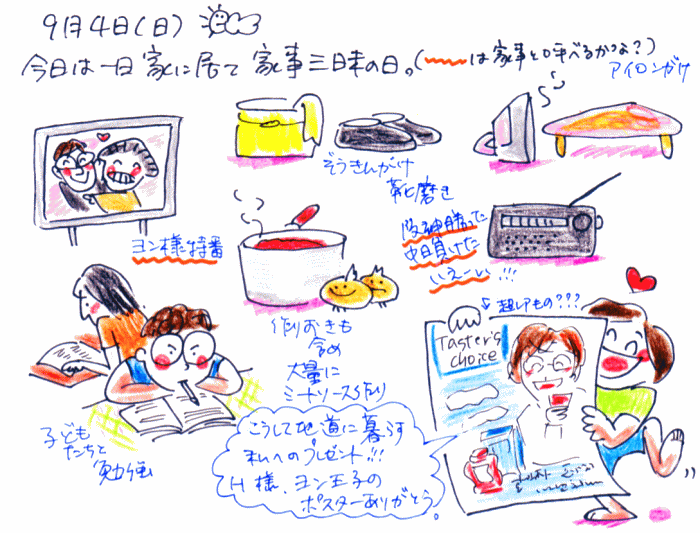 9月4日(日)
今日は一日家に居て家事三昧の日。(〰〰は家事と呼べるかな?)
アイロンがけ
ぞうきんがけ
靴磨き
ヨン様特番
阪神勝った
中日負けた
いえーい!!!
作りおきも
含め
大量に
ミートソース作り
↓超レアもの???
Taster's
choice
子ども
たちと
勉強
こうして地道に暮らす
私へのプレゼント!!!
H様、ヨン王子の
ポスターありがとう。